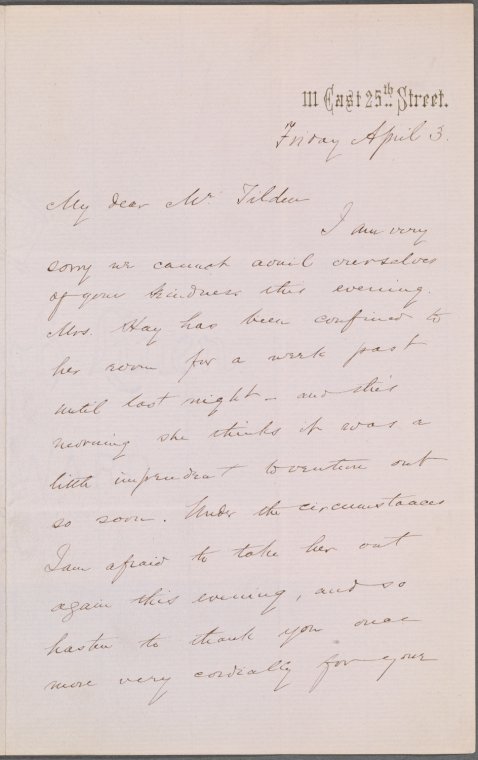 111 East 25th Street.
Friday April 3.
My dear Mr. Tilden
I am very
sorry we cannot avail ourselves
of your kindness this evening.
Mrs. Hay has been confined to
her room for a week past
until last night – and this
morning she thinks it was a
little imprudent to venture out
so soon. Under the circumstances
I am afraid to take her out
again this evening, and so
hasten to thank you once
more very cordially for your